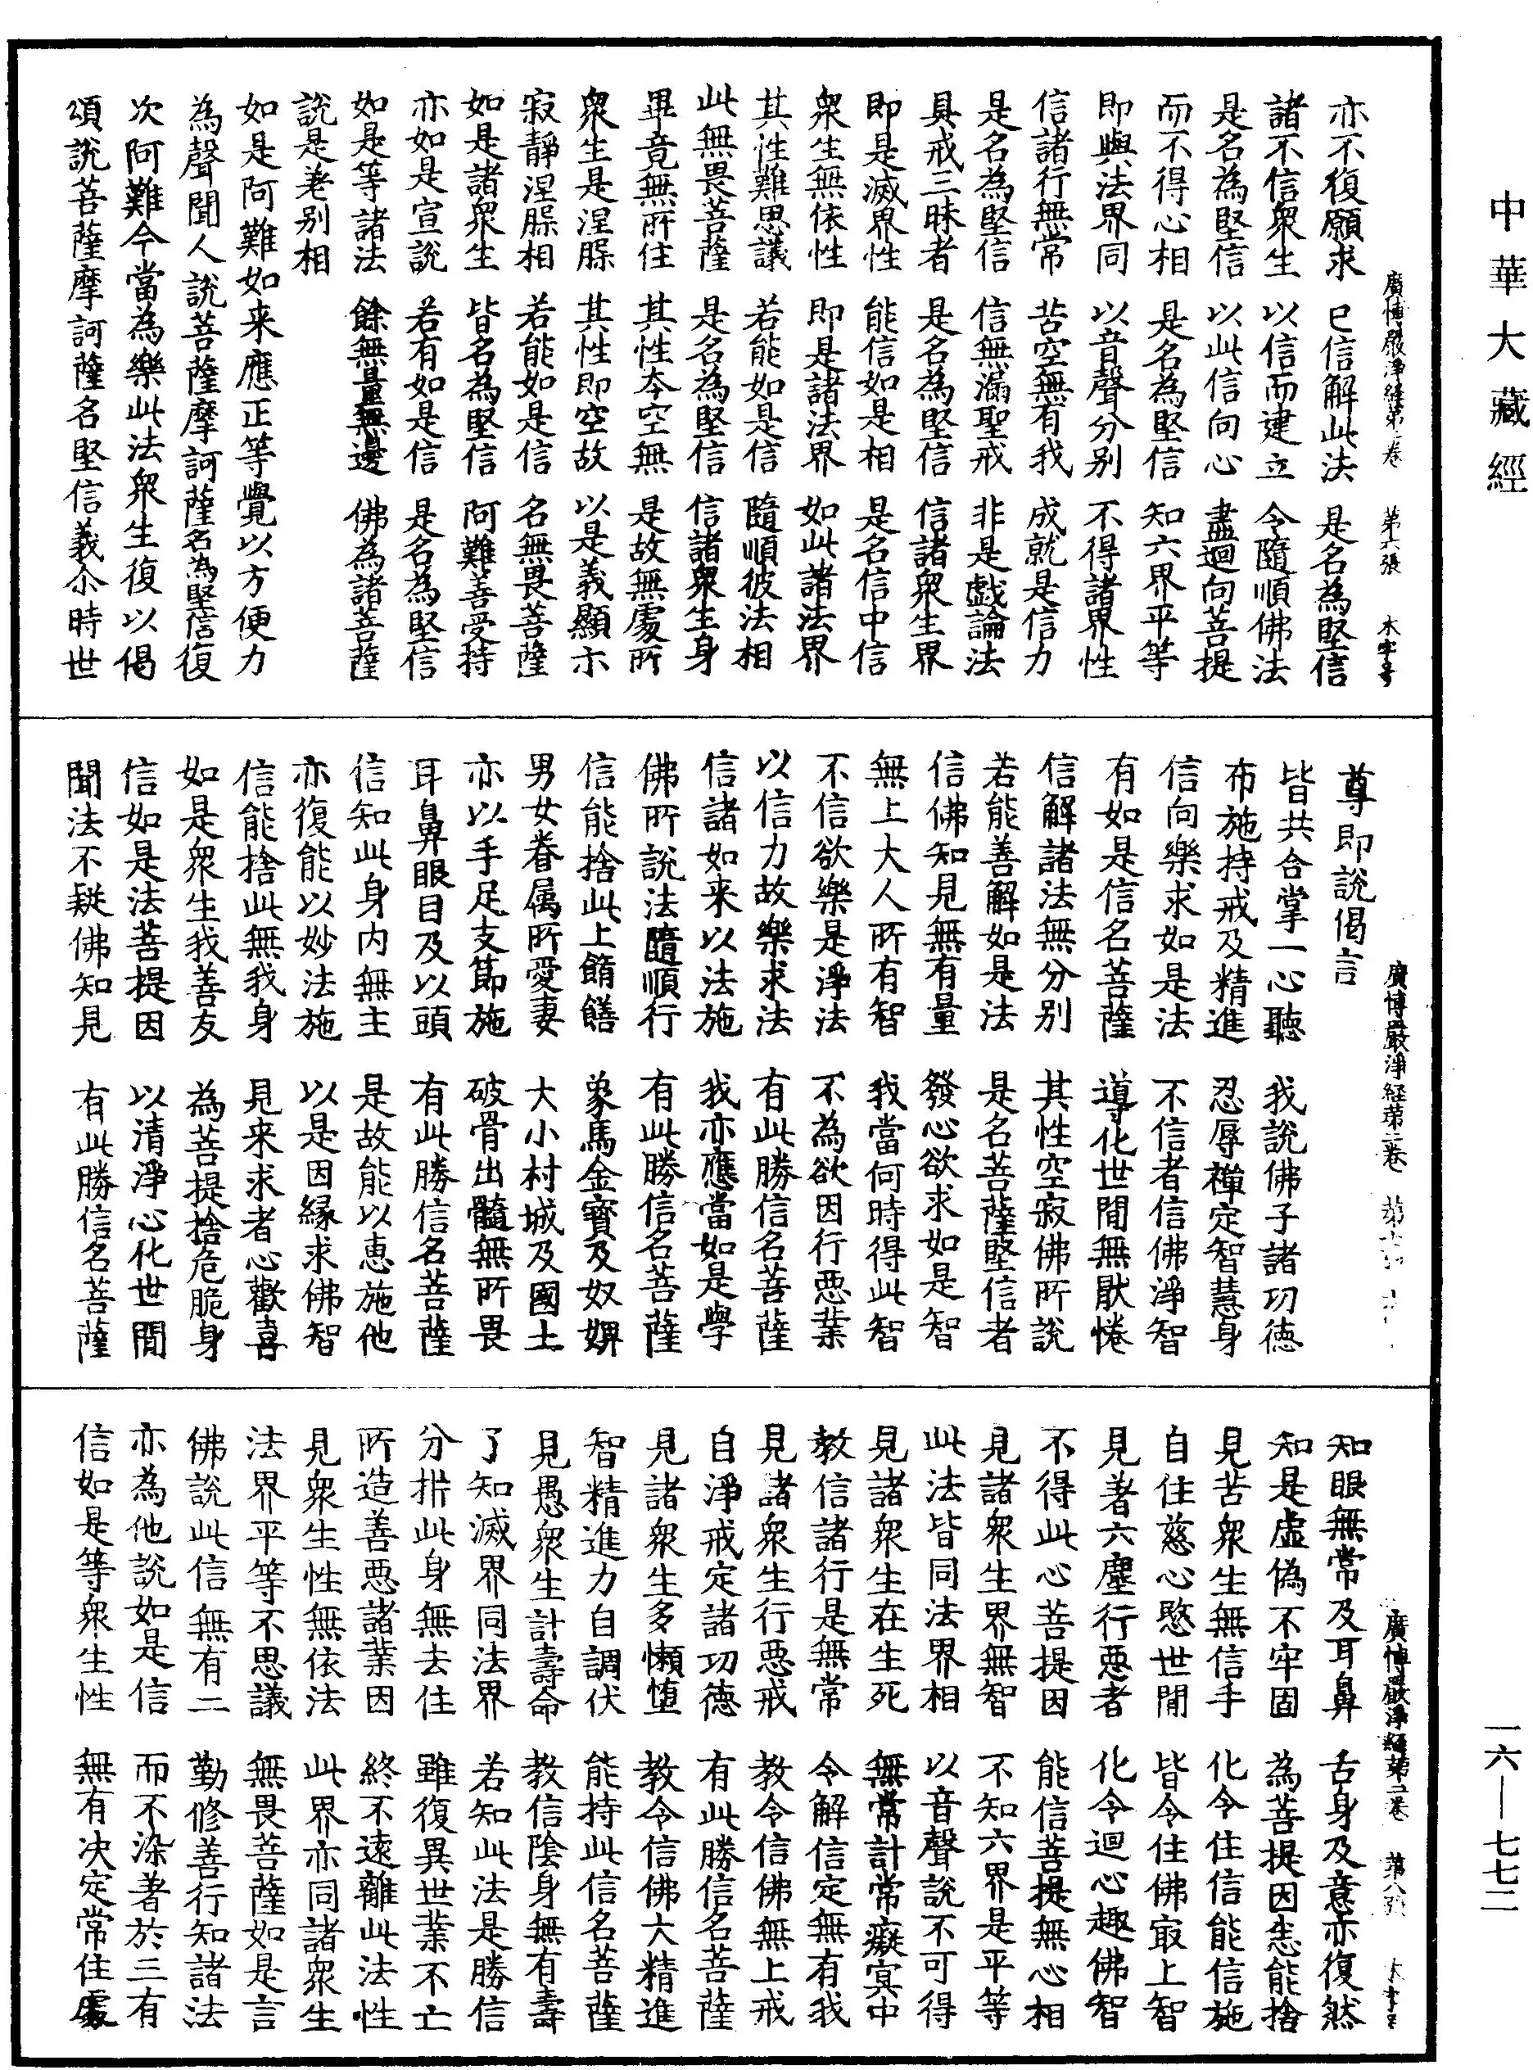 中華大藏經
廣博嚴淨經第二卷　第六張　木字号
亦不復願求　已信解此法　是名為堅信
諸不信衆生　以信而建立　令隨順佛法
是名為堅信　以此信向心　盡迴向菩提
而不得心相　是名為堅信　知六界平等
即與法界同　以音聲分別　不得諸界性
信諸行無常　苦空無有我　成就是信力
是名為堅信　信無漏聖戒　非是戲論法
具戒三昧者　是名為堅信　信諸衆生界
即是滅界性　能信如是相　是名信中信
衆生無依性　即是諸法界　如此諸法界
其性難思議　若能如是信　隨順彼法相
此無畏菩薩　是名為堅信　信諸衆生身
畢竟無所住　其性本空無　是故無處所
衆生是涅槃　其性即空故　以是義顯示
寂靜涅槃相　若能如是信　名無畏菩薩
如是諸衆生　皆名為堅信　阿難善受持
亦如是宣說　若有如是信　是名為堅信
如是等諸法　餘無量無邊　佛為諸菩薩
說是差別相
如是阿難如来應正等覺以方便力
為聲聞人說菩薩摩訶薩名為堅信復
次阿難今當為樂此法衆生復以偈
頌說菩薩摩訶薩名堅信義尒時世
廣博嚴淨經第二卷
尊即說偈言
皆共合掌一心聽　我說佛子諸功德
布施持戒及精進　忍辱禪定智慧身
信向樂求如是法　不信者信佛淨智
有如是信名菩薩　導化世間無猒惓
信解諸法無分別　其性空寂佛所說
若能善解如是法　是名菩薩堅信者
信佛知見無有量　發心欲求如是智
無上大人所有智　我當何時得此智
不信欲樂是淨法　不為欲因行惡業
以信力故樂求法　有此勝信名菩薩
信諸如来以法施　我亦應當如是學
佛所說法隨順行　有此勝信名菩薩
信能捨此上餚饍　象馬金寶及奴婢
男女眷属所愛妻　大小村城及國土
亦以手足支節施　破骨出髓無所畏
耳鼻眼目及以頭　有此勝信名菩薩
信知此身内無主　是故能以惠施他
亦復能以妙法施　以是因緣求佛智
信能捨此無我身　見来求者心歡喜
如是衆生我善友　為菩提捨危脆身
信如是法菩提因　以清淨心化世間
聞法不疑佛知見　有此勝信名菩薩
廣博嚴淨經第二卷　第八張　木字号
知眼無常及耳鼻　舌身及意亦復然
知是虛偽不牢固　為菩提因悉能捨
見苦衆生無信手　化令住信能信施
自住慈心愍世間　皆令住佛寂上智
見著六塵行惡者　化令迴心趣佛智
不得此心菩提因　能信菩提無心相
見諸衆生界無智　不知六界是平等
此法皆同法界相　以音聲說不可得
見諸衆生在生死　無常計常癡冥中
教信諸行是無常　令解信定無有我
見諸衆生行惡戒　教令信佛無上戒
自淨戒定諸功德　有此勝信名菩薩
見諸衆生多懶惰　教令信佛大精進
智精進力自調伏　能持此信名菩薩
見愚衆生計壽命　教信陰身無有壽
了知滅界同法界　若知此法是勝信
分㭊此身無去住　雖復異世業不亡
所造善惡諸業因　終不遠離此法性
見衆生性無依法　此界亦同諸衆生
法界平等不思議　無畏菩薩如是言
佛說此信無有二　勤修善行知諸法
亦為他說如是信　而不染著於三有
信如是等衆生性　無有决定常住處
一六—七七二